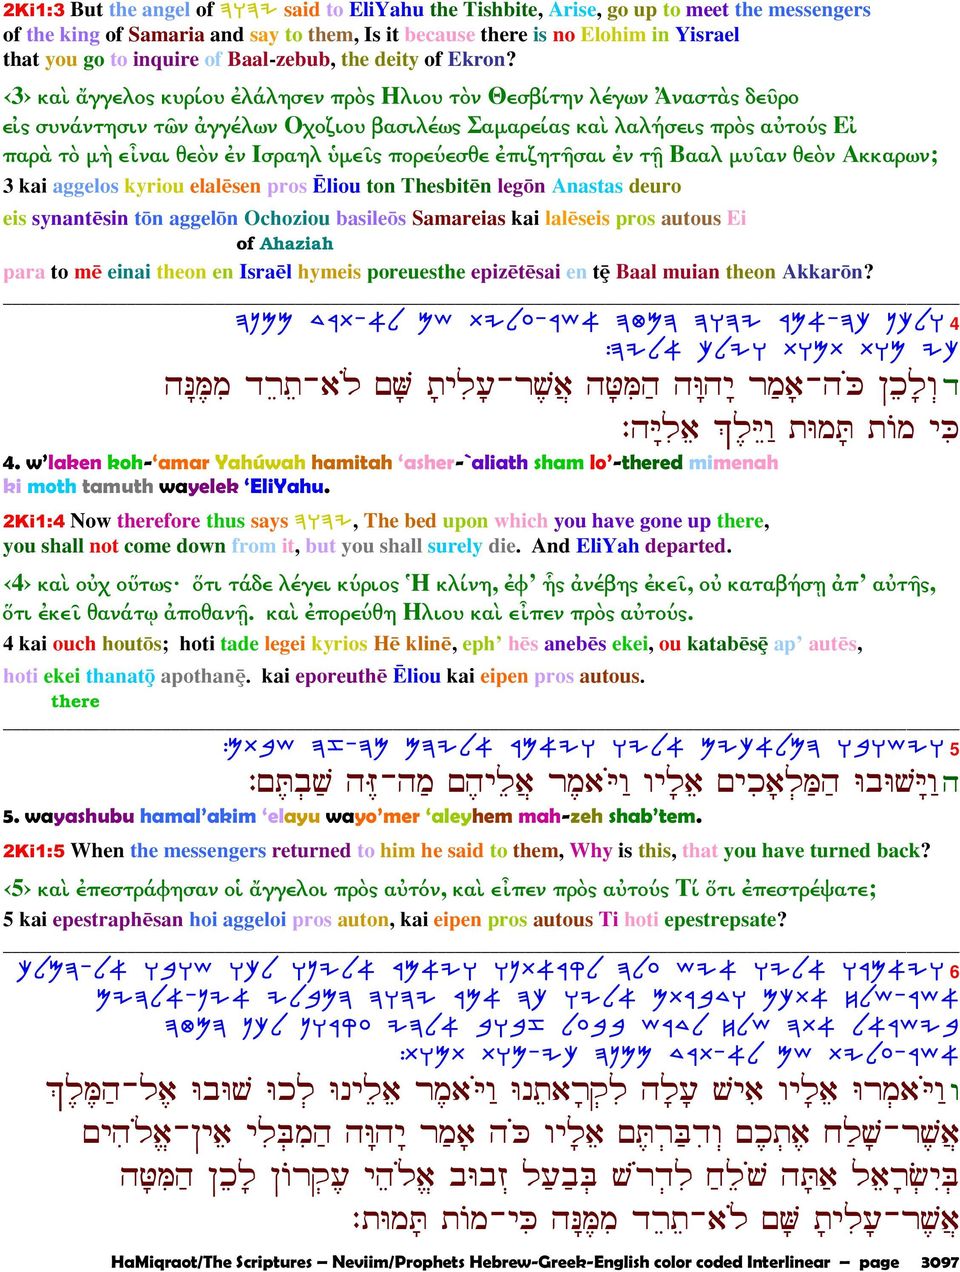 2Ki1:3 But the angel of 𐤉𐤄𐤅𐤄 said to EliYahu the Tishbite, Arise, go up to meet the messengers
of the king of Samaria and say to them, Is it because there is no Elohim in Yisrael
that you go to inquire of Baal-zebub, the deity of Ekron?
‹3› καὶ ἄγγελος κυρίου ἐλάλησεν πρὸς Ηλιου τὸν Θεσβίτην λέγων Ἀναστὰς δεῦρο
εἰς συνάντησιν τῶν ἀγγέλων Οχοζιου βασιλέως Σαμαρείας καὶ λαλήσεις πρὸς αὐτούς Εἰ
παρὰ τὸ μὴ εἶναι θεὸν ἐν Ισραηλ ὑμεῖς πορεύεσθε ἐπιζητῆσαι ἐν τῇ Βααλ μυῖαν θεὸν Ακκαρων;
3 kai aggelos kyriou elalēsen pros Ēliou ton Thesbitēn legōn Anastas deuro
eis synantēsin tōn aggelōn Ochoziou basileōs Samareias kai lalēseis pros autous Ei
of Ahaziah
para to mē einai theon en Israēl hymeis poreuesthe epizētēsai en tȩ̄ Baal muian theon Akkarōn?
4 𐤅𐤋𐤊𐤍 𐤊𐤄-𐤀𐤌𐤓 𐤉𐤄𐤅𐤄 𐤄𐤌𐤈𐤄 𐤀𐤔𐤓-𐤏𐤋𐤉𐤕 𐤔𐤌 𐤋𐤀-𐤕𐤓𐤃 𐤌𐤌𐤍𐤄
𐤊𐤉 𐤌𐤅𐤕 𐤕𐤌𐤅𐤕 𐤅𐤉𐤋𐤊 𐤀𐤋𐤉𐤄:
ד וְלָכֵן כֹּה־אָמַר יְהוָה הַמִּטָּה אֲשֶׁר־עָלִיתָ שָּׁם לֹא־תֵרֵד מִמֶּנָּה
כִּי מוֹת תָּמוּת וַיֵּלֶךְ אֵלִיָּה׃
4. w’laken koh-‘amar Yahúwah hamitah ‘asher-`aliath sham lo’-thered mimenah
ki moth tamuth wayelek ‘EliYahu.
2Ki1:4 Now therefore thus says 𐤉𐤄𐤅𐤄, The bed upon which you have gone up there,
you shall not come down from it, but you shall surely die. And EliYah departed.
‹4› καὶ οὐχ οὕτως· ὅτι τάδε λέγει κύριος Ἡ κλίνη, ἐφ’ ἧς ἀνέβης ἐκεῖ, οὐ καταβήσῃ ἀπ’ αὐτῆς,
ὅτι ἐκεῖ θανάτῳ ἀποθανῇ. καὶ ἐπορεύθη Ηλιου καὶ εἶπεν πρὸς αὐτούς.
4 kai ouch houtōs; hoti tade legei kyrios Hē klinē, eph’ hēs anebēs ekei, ou katabēsȩ̄ ap’ autēs,
hoti ekei thanatō̧ apothanȩ̄. kai eporeuthē Ēliou kai eipen pros autous.
there
5 𐤅𐤉𐤔𐤅𐤁𐤅 𐤄𐤌𐤋𐤀𐤊𐤉𐤌 𐤀𐤋𐤉𐤅 𐤅𐤉𐤀𐤌𐤓 𐤀𐤋𐤉𐤄𐤌 𐤌𐤄-𐤆𐤄 𐤔𐤁𐤕𐤌:
ה וַיָּשׁוּבוּ הַמַּלְאָכִים אֵלָיו וַיֹּאמֶר אֲלֵיהֶם מַה־זֶּה שַׁבְתֶּם׃
5. wayashubu hamal’akim ‘elayu wayo’mer ‘aleyhem mah-zeh shab’tem.
2Ki1:5 When the messengers returned to him he said to them, Why is this, that you have turned back?
‹5› καὶ ἐπεστράφησαν οἱ ἄγγελοι πρὸς αὐτόν, καὶ εἶπεν πρὸς αὐτούς Τί ὅτι ἐπεστρέψατε;
5 kai epestraphēsan hoi aggeloi pros auton, kai eipen pros autous Ti hoti epestrepsate?
6 𐤅𐤉𐤀𐤌𐤓𐤅 𐤀𐤋𐤉𐤅 𐤀𐤉𐤔 𐤏𐤋𐤄 𐤋𐤒𐤓𐤀𐤕𐤍𐤅 𐤅𐤉𐤀𐤌𐤓 𐤀𐤋𐤉𐤍𐤅 𐤋𐤊𐤅 𐤔𐤅𐤁𐤅 𐤀𐤋-𐤄𐤌𐤋𐤊
𐤀𐤔𐤓-𐤔𐤋𐤇 𐤀𐤕𐤊𐤌 𐤅𐤃𐤁𐤓𐤕𐤌 𐤀𐤋𐤉𐤅 𐤊𐤄 𐤀𐤌𐤓 𐤉𐤄𐤅𐤄 𐤄𐤌𐤁𐤋𐤉 𐤀𐤉𐤍-𐤀𐤋𐤄𐤉𐤌
𐤁𐤉𐤔𐤓𐤀𐤋 𐤀𐤕𐤄 𐤔𐤋𐤇 𐤋𐤃𐤓𐤔 𐤁𐤁𐤏𐤋 𐤆𐤁𐤅𐤁 𐤀𐤋𐤄𐤉 𐤏𐤒𐤓𐤅𐤍 𐤋𐤊𐤍 𐤄𐤌𐤈𐤄
𐤀𐤔𐤓-𐤏𐤋𐤉𐤕 𐤔𐤌 𐤋𐤀-𐤕𐤓𐤃 𐤌𐤌𐤍𐤄 𐤊𐤉-𐤌𐤅𐤕 𐤕𐤌𐤅𐤕:
ו וַיֹּאמְרוּ אֵלָיו אִישׁ עָלָה לִקְרָאתֵנוּ וַיֹּאמֶר אֵלֵינוּ לְכוּ שׁוּבוּ אֶל־הַמֶּלֶךְ
אֲשֶׁר־שָׁלַח אֶתְכֶם וְדִבַּרְתֶּם אֵלָיו כֹּה אָמַר יְהוָה הַמִבְּלִי אֵין־אֱלֹהִים
בְּיִשְׂרָאֵל אַתָּה שֹׁלֵחַ לִדְרֹשׁ בְּבַעַל זְבוּב אֱלֹהֵי עֶקְרוֹן לָכֵן הַמִּטָּה
אֲשֶׁר־עָלִיתָ שָּׁם לֹא־תֵרֵד מִמֶּנָּה כִּי־מוֹת תָּמוּת׃
HaMiqraot/The Scriptures – Neviim/Prophets Hebrew-Greek-English color coded Interlinear – page 3097